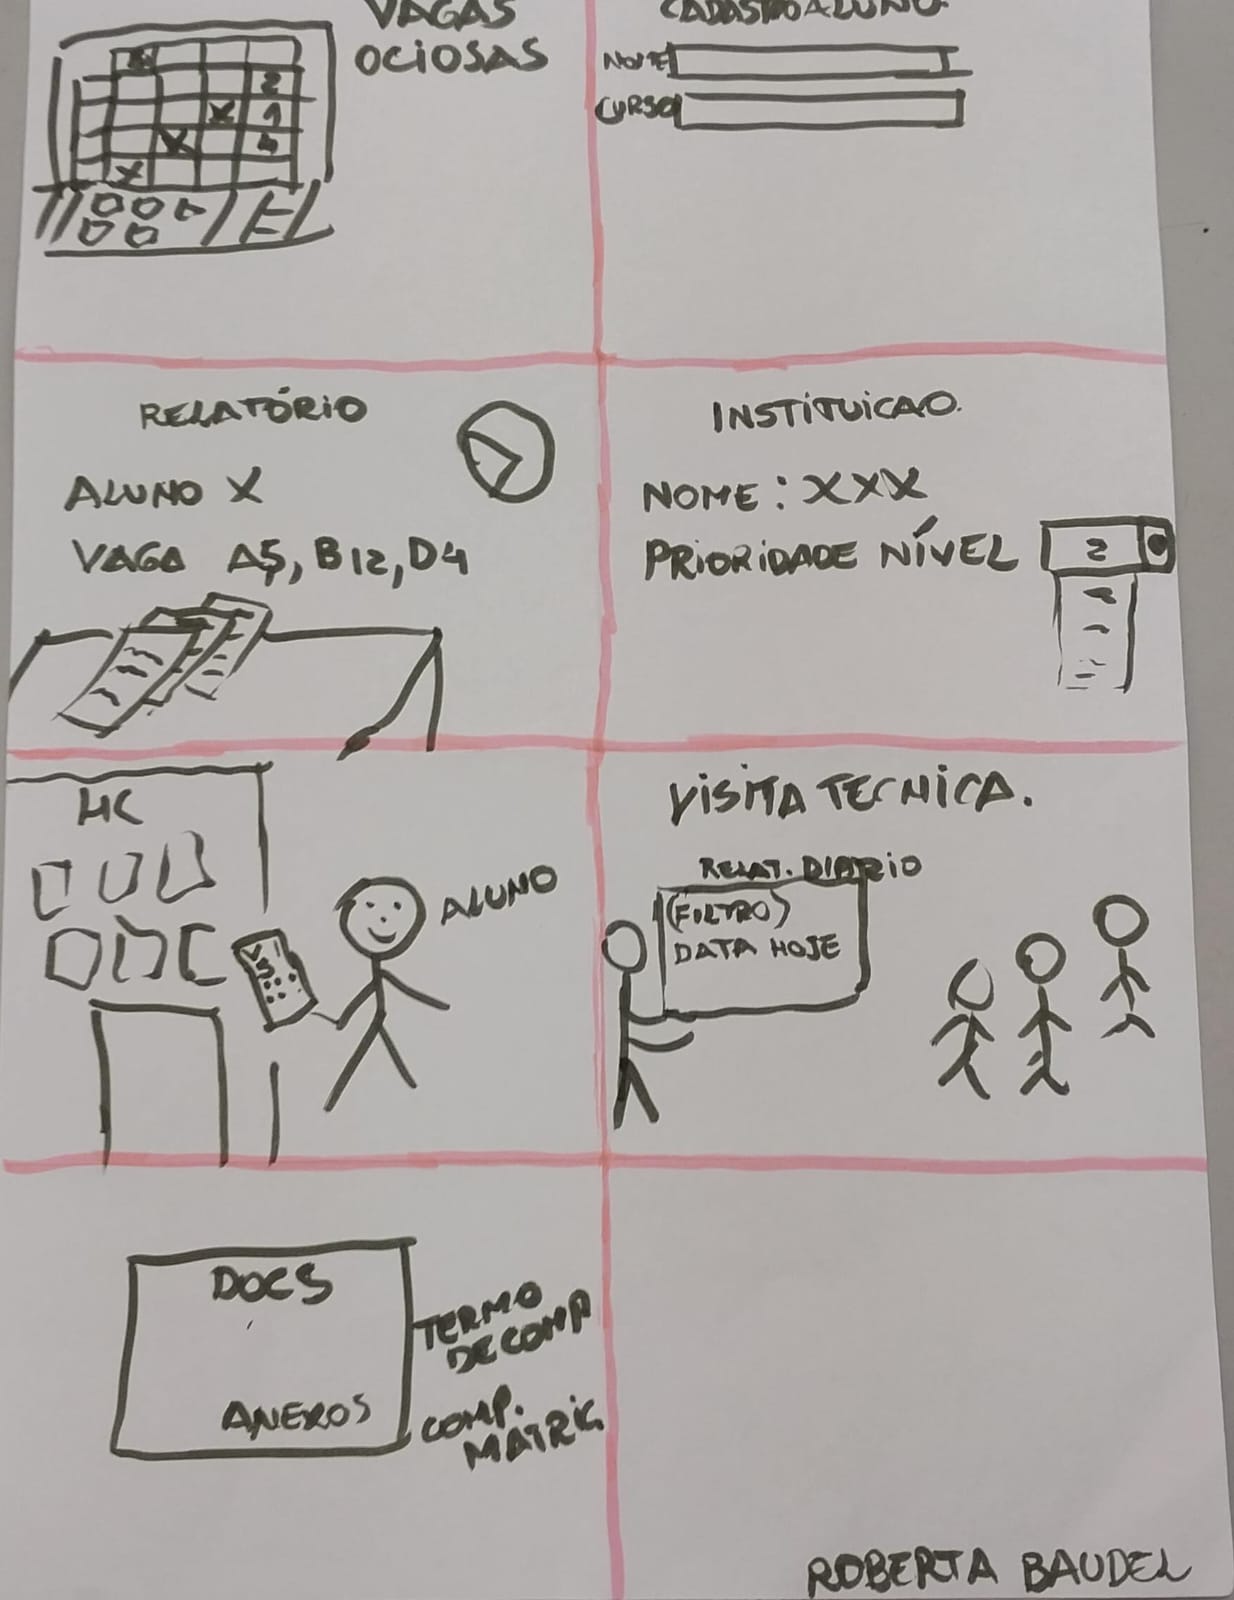 VAGAS
OCIOSAS
2
1
4
CADASTRO ALUNO
NOME
CURSO
RELATÓRIO
ALUNO X
VAGA A5, B12, D4
INSTITUICAO.
NOME: XXX
PRIORIDADE NÍVEL 2
HC
ALUNO
VISITA TECNICA.
RELAT. DIARIO
(FILTRO)
DATA HOJE
DOCS
ANEXOS
TERMO
DE COMP
COMP.
MATRIC.
ROBERTA BAUDEL